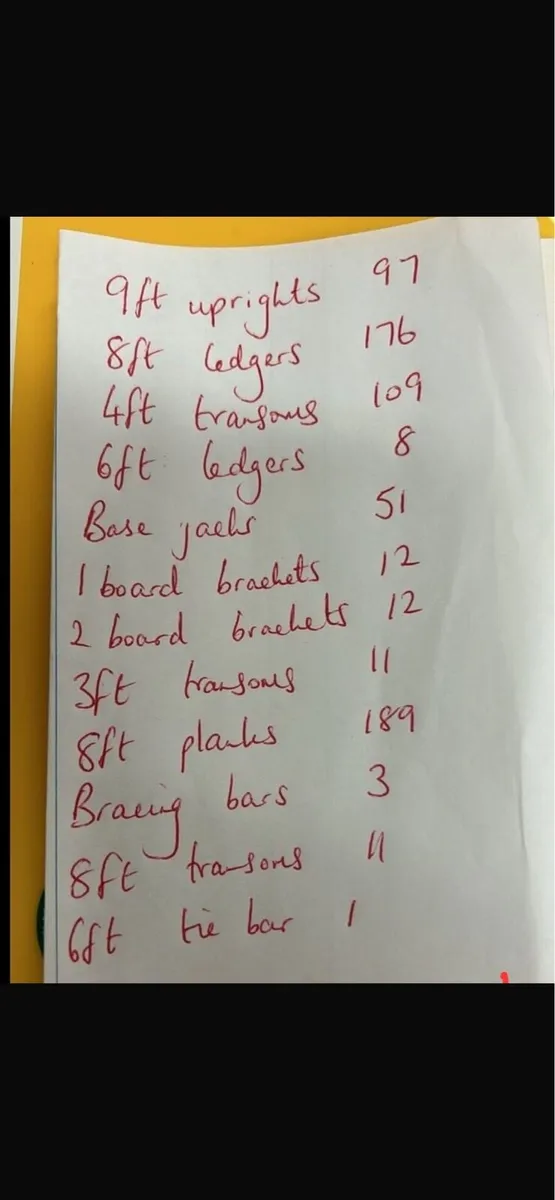 9ft uprights 97
8ft ledgers 176
4ft transoms 109
6ft ledgers 8
Base jacks 51
1 board brackets 12
2 board brackets 12
3ft transoms 11
8ft planks 189
Bracing bars 3
8ft transoms 11
6ft tie bar 1